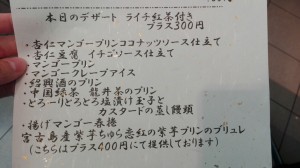 本日のデザート ライチ紅茶付き
プラス300円
・杏仁マンゴープリンココナッツソース仕立て
・杏仁豆腐 イチゴソース仕立て
・マンゴープリン
・マンゴークレープアイス
・紹興酒のプリン
・中国緑茶 龍井茶のプリン
・とろーりとろとろ塩漬け玉子と
カスタードの蒸し饅頭
・揚げマンゴー春捲
宮古島産紫芋ちゅら恋紅の紫芋プリンのブリュレ
(こちらはプラス400円にて提供しております)